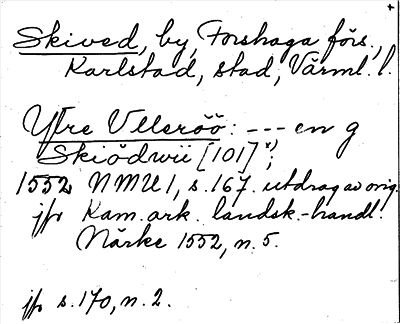 Skived, by, Forshaga förs.,
Karlstad, stad, Värml. l.
Yfre Ulleröö: --- en g
Skiödwii [101]*);
1552 NMU 1, s. 167. utdrag av orig.
jfr Kam. ark. landsk.-handl.
Närke 1552, n. 5.
jfr s. 170, n. 2.